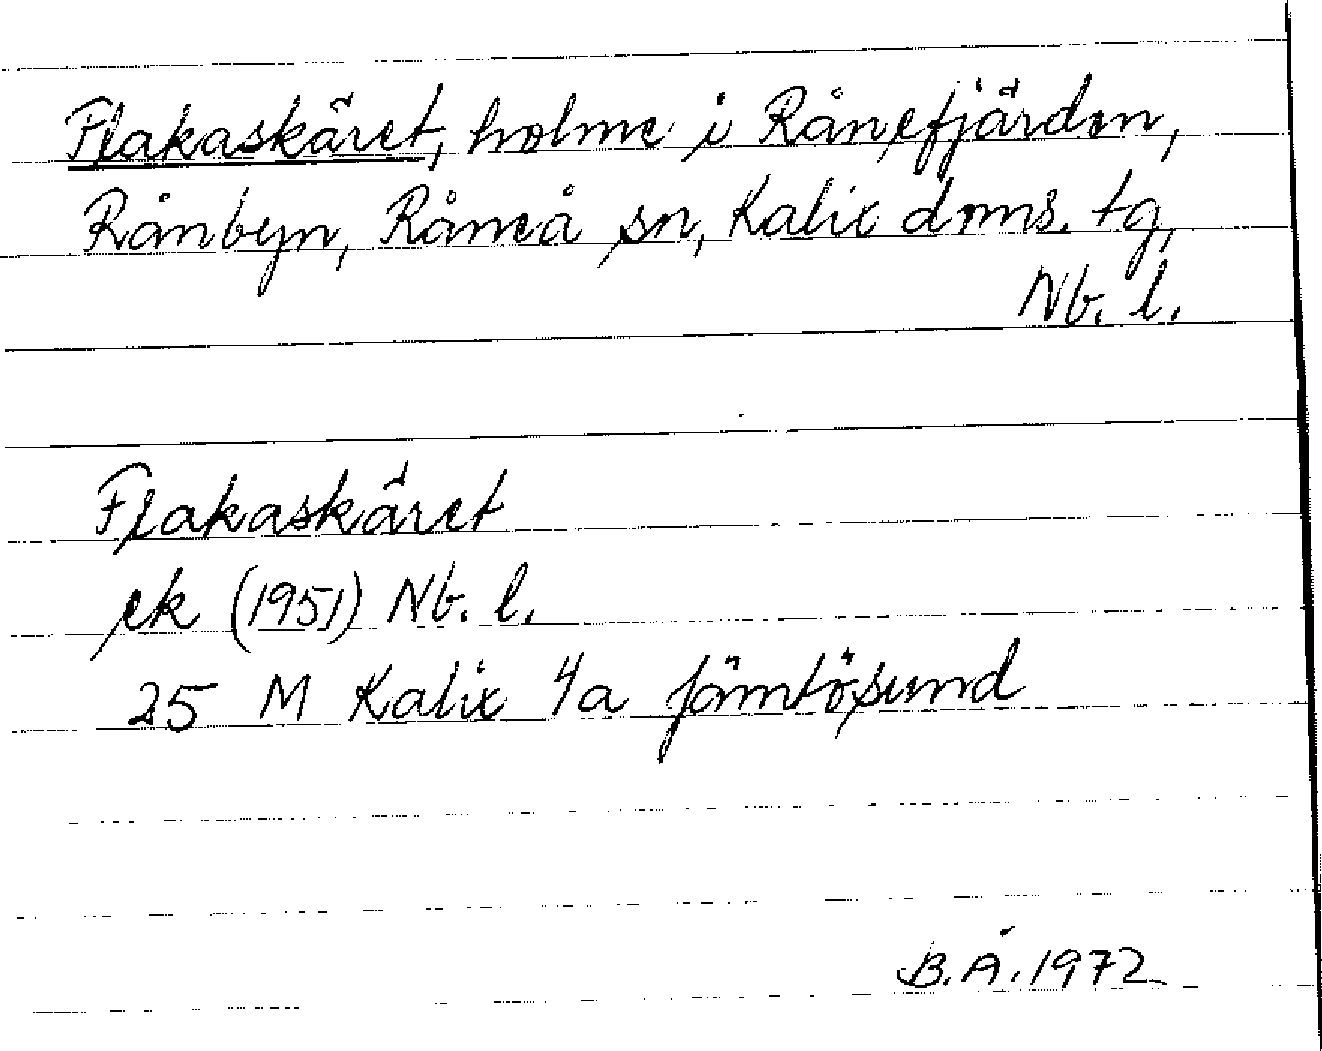 Flakaskäret, holme i Rånefjärden,
Rånbyn, Råneå sn, Kalix doms. tg,
Nb. l.
Flakaskäret
ek (1951) Nb. l.
25 M Kalix 4a Jämtösund
B.Å.1972